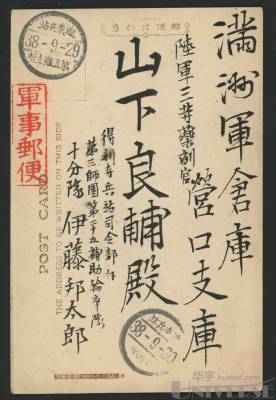 滿洲軍倉庫
營口支庫
陸軍三等藥劑官
山下良輔殿
得利寺兵站司令部付
第三師團第二十九補助輸卒隊
十分隊 伊藤邦太郎
軍事郵便
きかは便郵
38-9-29
38-9-30
POST CARD
THE ADDRESS TO BE WRITTEN ON THIS SIDE
华宇 huabid.com
UNIVERSE